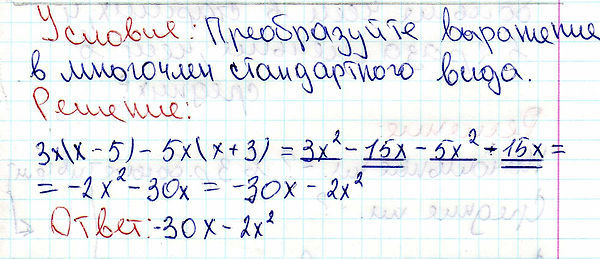 Условие: Преобразуйте выражение
в многочлен стандартного вида.
Решение:
3x(x-5)-5x(x+3)=3x²-15x-5x²-15x=
=-2x²-30x=-30x-2x²
Ответ:-30x-2x²